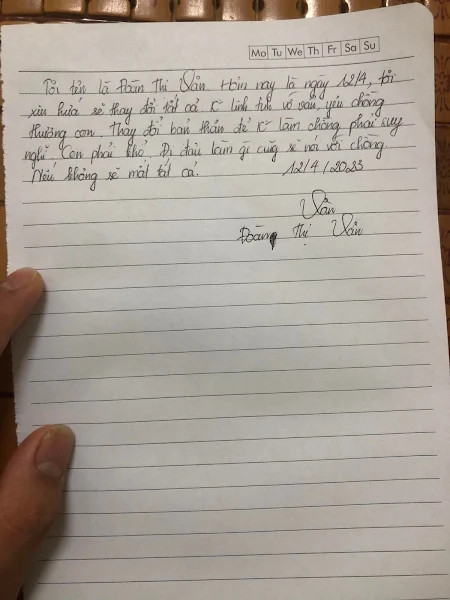 Mo Tu We Th Fr Sa Su
Tôi tên là Đoàn Thị Vân Hôm nay là ngày 12/4, tôi
xin hứa sẽ thay đổi tất cả K linh tinh vớ vẩn, yêu chồng
thương con. Thay đổi bản thân để K làm chồng phải suy
nghĩ. Con phải khổ. Đi đâu làm gì cũg sẽ nói với chồng.
Nếu không sẽ mất tất cả. 12/4/2023
Vân
Đoàn Thị Vân